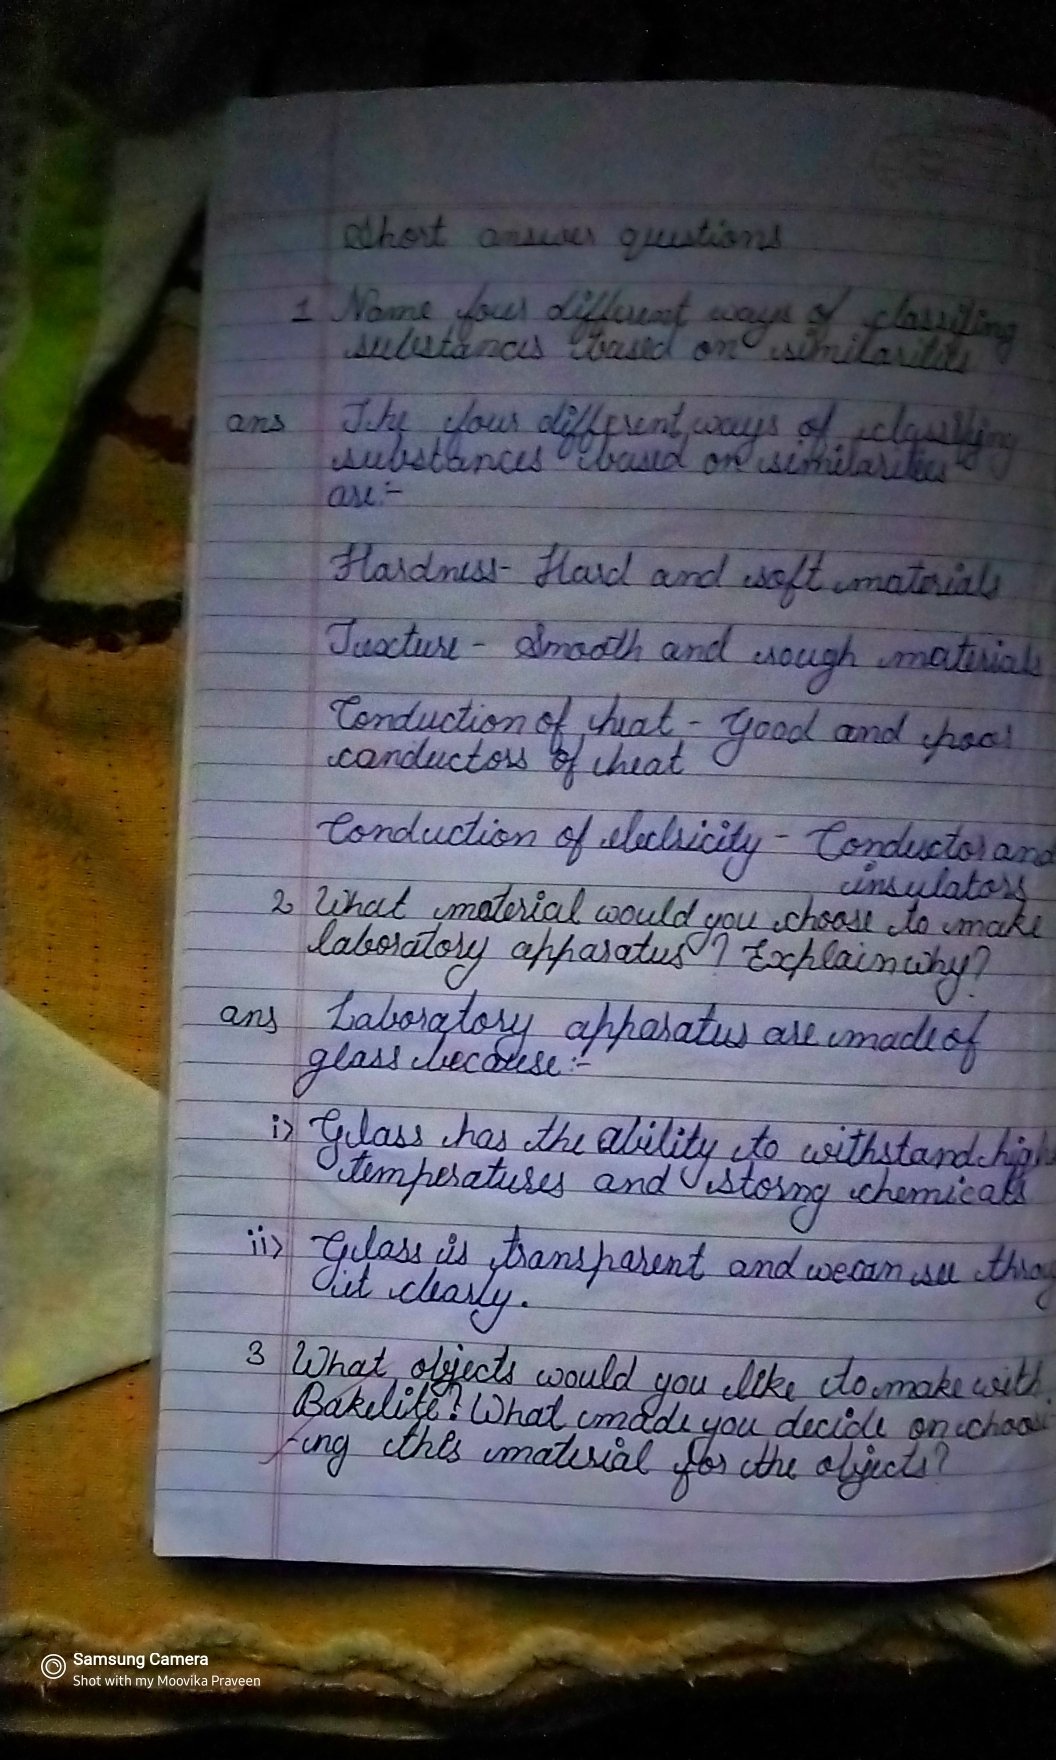 Short answer questions
1 Name four different ways of classifing
substances based on similarities
ans The four different ways of classifying
substances based on similarities
are:-
Hardness- Hard and soft materials
Texture - Smooth and rough materials
Conduction of heat - Good and poor
conductors of heat
Conduction of electricity - Conductor and
insulators
2 What material would you choose to make
laboratory apparatus? Explain why?
ans Laboratory apparatus are made of
glass because:-
i> Glass has the ability to withstand high
temperatures and storng chemicals
ii> Glass is transparent and we can see throu
it clearly.
3 What objects would you like to make with
Bakelite? What made you decide on choos
-ing this material for the objects?
Samsung Camera
Shot with my Moovika Praveen